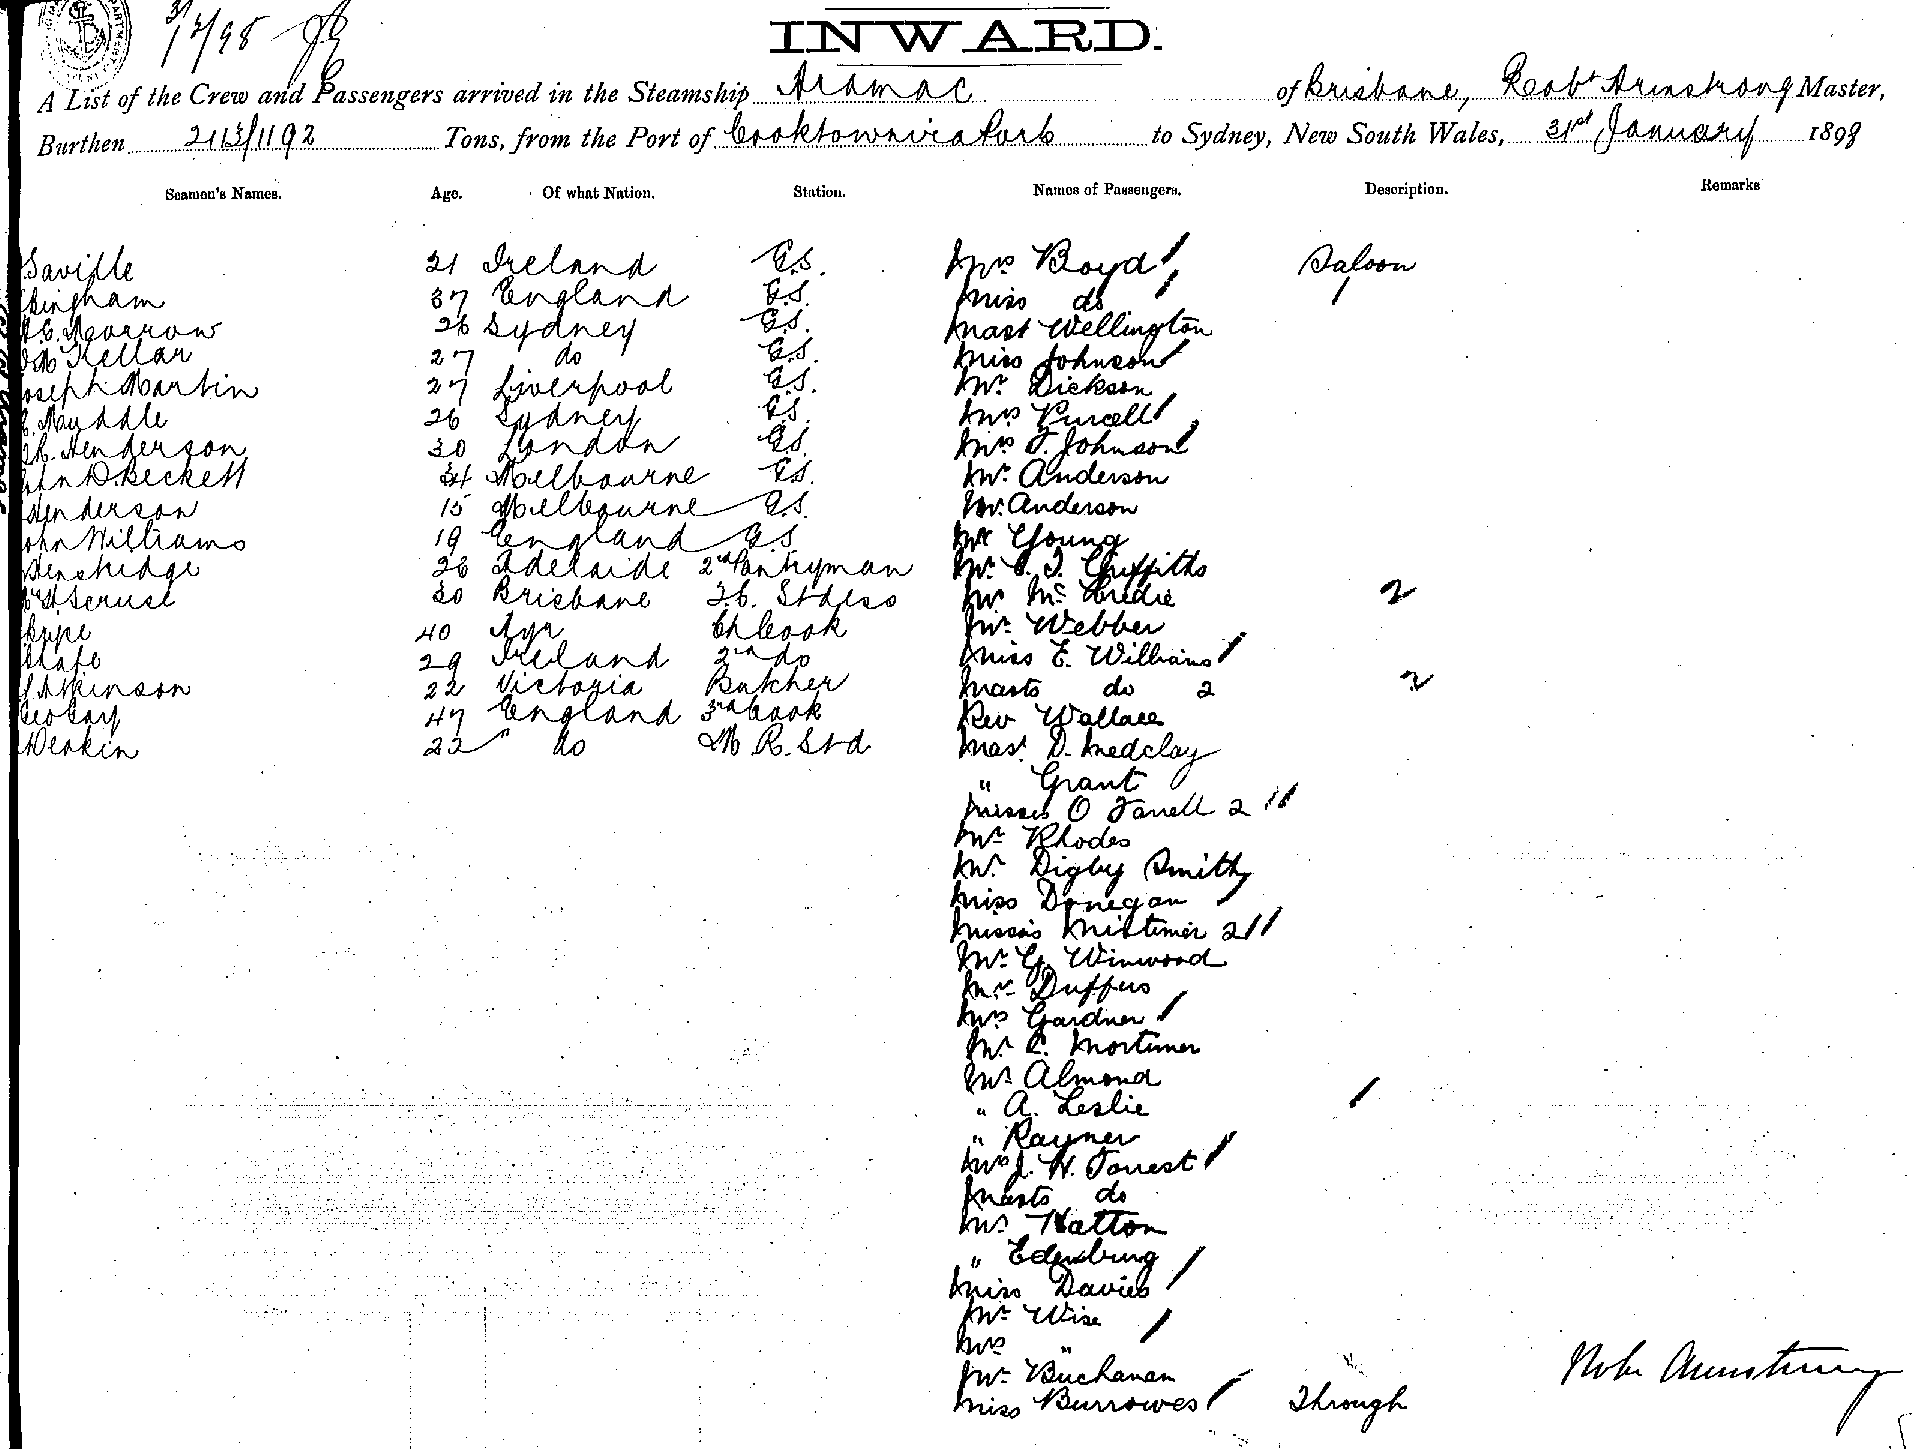 31/1/98
INWARD.
A List of the Crew and Passengers arrived in the Steamship Aramac of Brisbane, Robt Armstrong Master,
Burthen 2113/1192 Tons, from the Port of Cooktown via Ports to Sydney, New South Wales, 31st January 1898
Seamen's Names. Age. Of what Nation. Station. Names of Passengers. Description. Remarks
Saville 21 Ireland G.S. Mrs Boyd Saloon
Bingham 37 England G.S. Miss do
Morrow 26 Sydney G.S. Mast Wellington
McKellar 27 do G.S. Miss Johnson
Joseph Martin 27 Liverpool G.S. Mr Dickson
Muddle 26 Sydney G.S. Mrs Purcell
Henderson 30 London G.S. Mrs T. Johnson
John D. Beckett 34 Melbourne G.S. Mr Anderson
Henderson 15 Melbourne G.S. Mr. Anderson
John Williams 19 England G.S. Mr Young
26 Adelaide 2nd Pantryman Mr. Griffiths
Scruse 30 Brisbane F.C. Stdess Mr Mc 2
40 Ayr Ch Cook Mr Webber
29 Ireland 2nd do Miss E. Williams
Atkinson 22 Victoria Butcher Masts do 2 2
Geo Gay 47 England 3rd Cook Rev Wallace
22 " do M R. Std Mast D. Medclay
" Grant
Misses O Farrell 2
Mr Rhodes
Mr. Digby Smith
Miss Donegan
Misses Mortimer 2
Mr G. Winwood
Mr Duffus
Mrs Gardner
Mr C. Mortimer
Mr Almond
" A. Leslie
" Rayner
Mrs J. H. Forrest
Masts do
Mr Hatton
" Edensburg
Miss Davies
Mr Wise
Mrs "
Mr. Buchanan
Miss Burrowes Through
Robt Armstrong